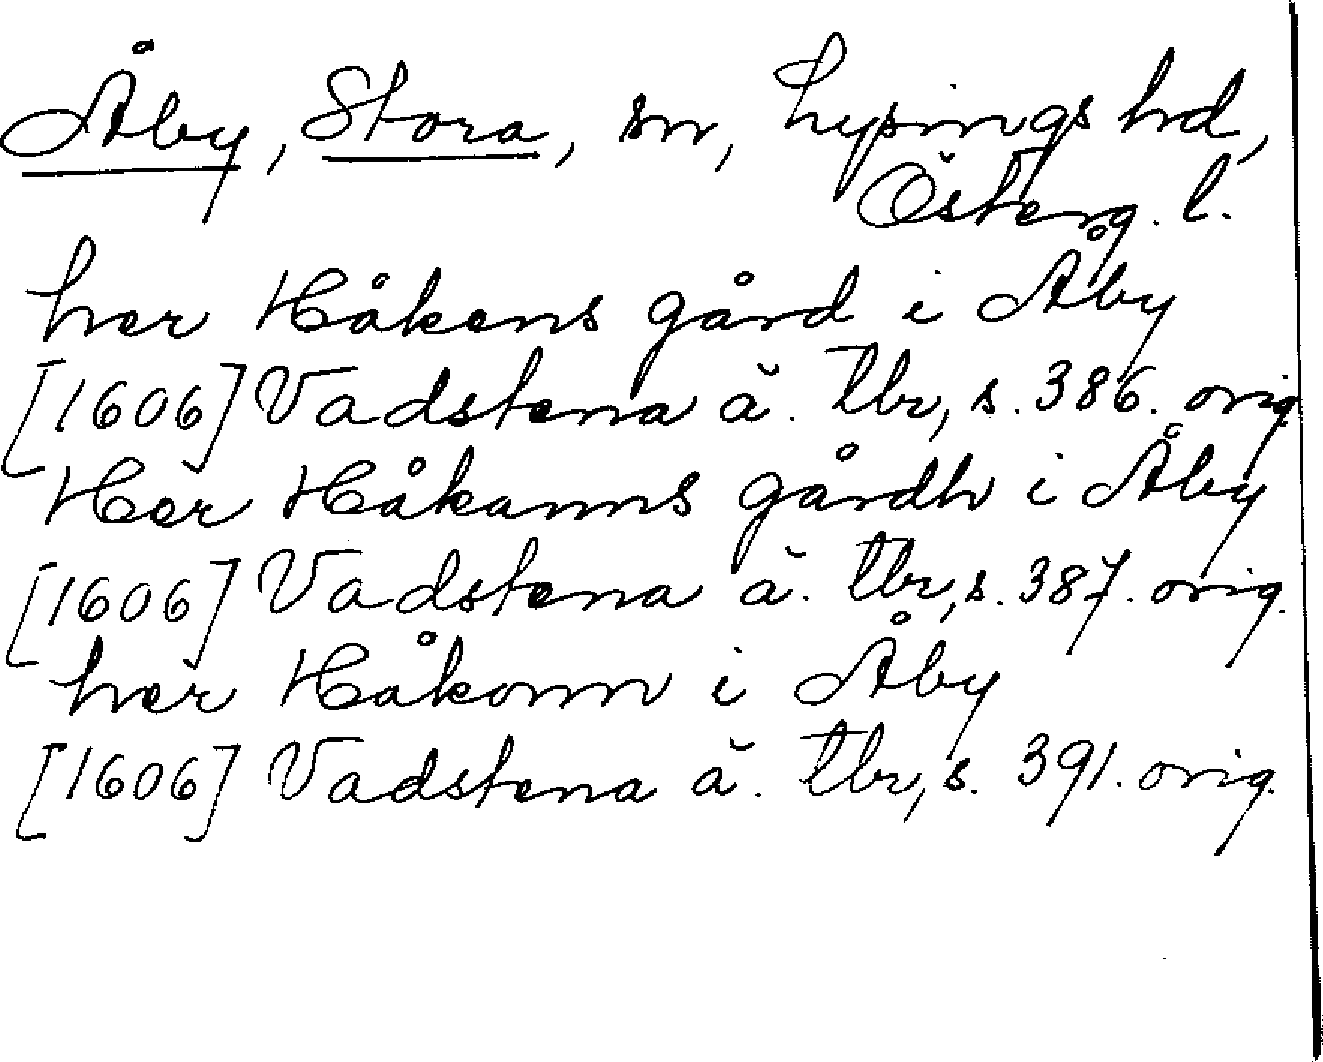 Åby, Stora, sn, Lysings hd,
Österg. l.
her Håkens gård i Åby
[1606] Vadstena ä. tbr, s. 386. orig.
Her Håkanns gårdh i Åby
[1606] Vadstena ä. tbr, s. 387. orig.
her Håkonn i Åby
[1606] Vadstena ä. tbr, s. 391. orig.